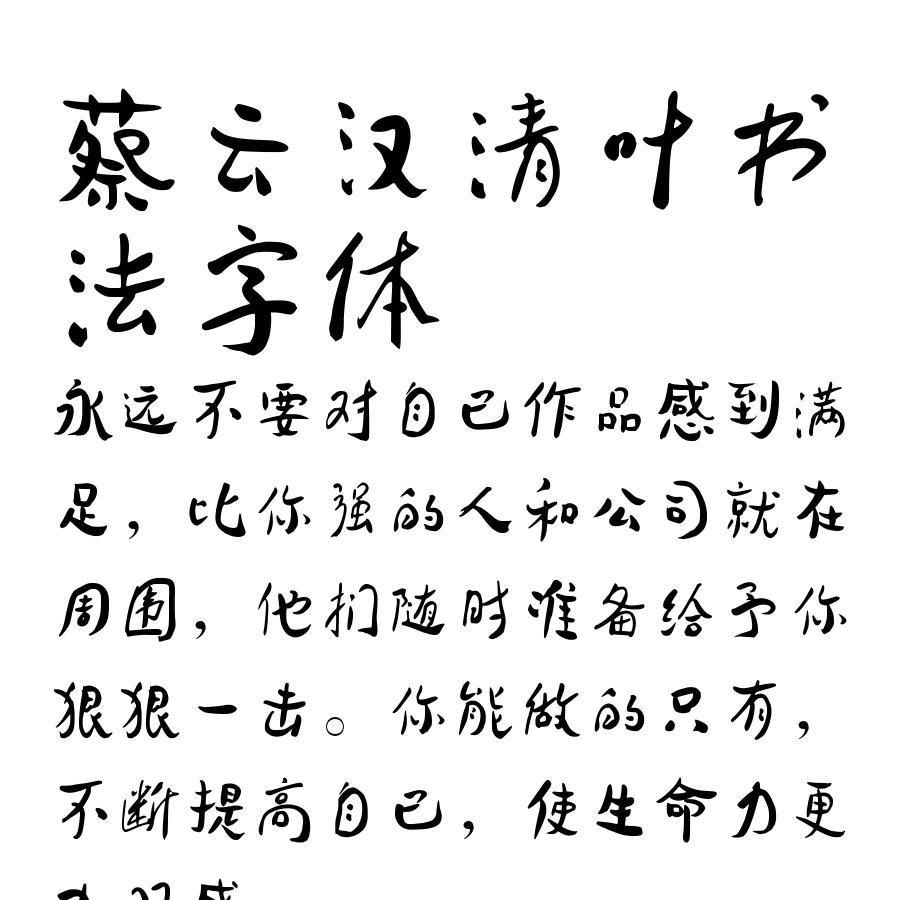 蔡云汉清叶书
法字体
永远不要对自己作品感到满
足，比你强的人和公司就在
周围，他扪随时准备给予你
狠狠一击。你能做的只有，
不断提高自己，使生命力更